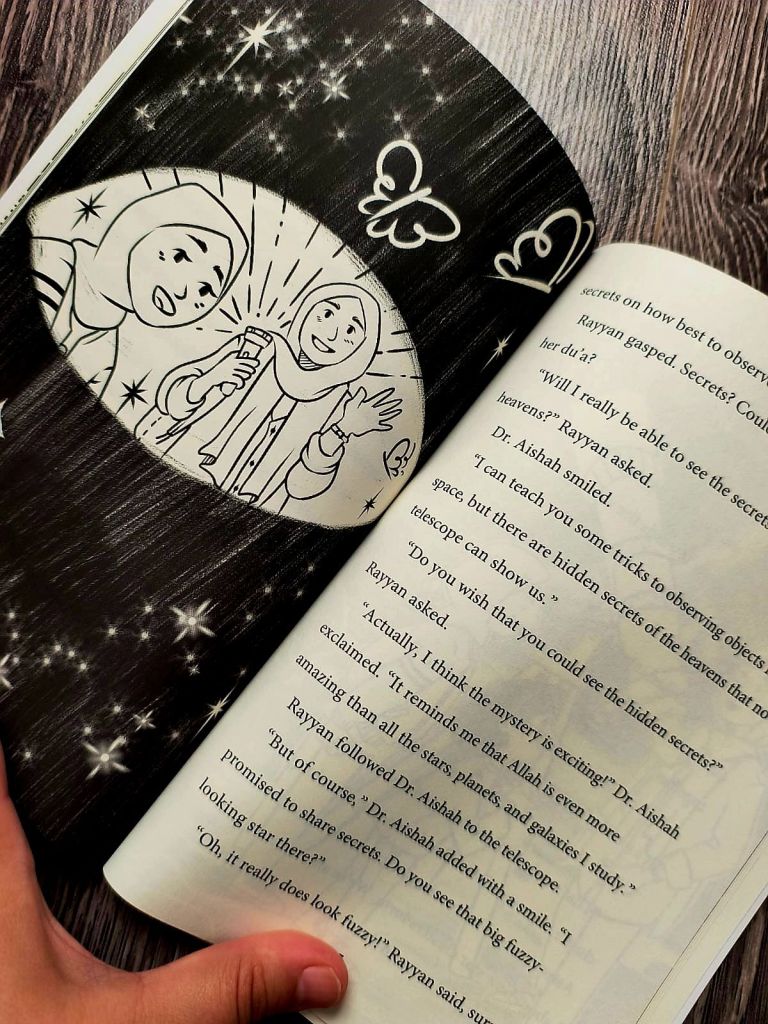 secrets on how best to observe
Rayyan gasped. Secrets? Could
her du'a?
"Will I really be able to see the secrets
heavens?" Rayyan asked.
Dr. Aishah smiled.
"I can teach you some tricks to observing objects
space, but there are hidden secrets of the heavens that no
telescope can show us."
"Do you wish that you could see the hidden secrets?"
Rayyan asked.
"Actually, I think the mystery is exciting!" Dr. Aishah
exclaimed. "It reminds me that Allah is even more
amazing than all the stars, planets, and galaxies I study."
Rayyan followed Dr. Aishah to the telescope.
"But of course," Dr. Aishah added with a smile. "I
promised to share secrets. Do you see that big fuzzy-
looking star there?"
"Oh, it really does look fuzzy!" Rayyan said,